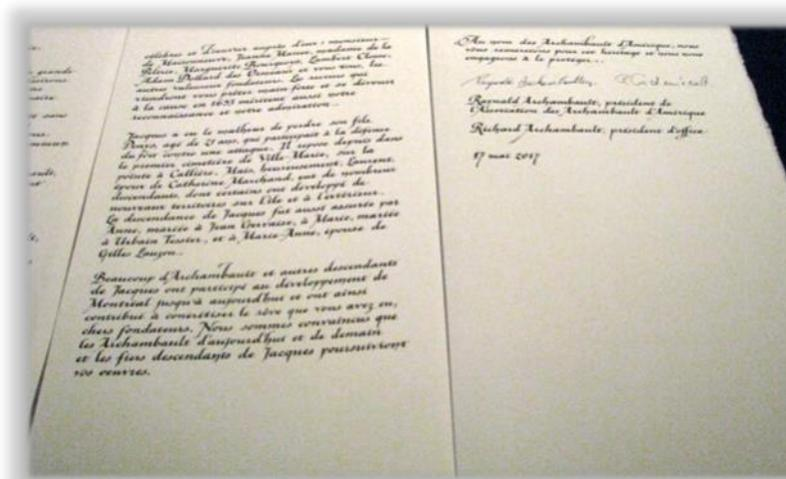 grande
sans
célèbres et d'oeuvrer auprès d'eux : monsieur
de Maisonneuve, Jeanne Mance, madame de la
Peltrie, Marguerite Bourgeoys, Lambert Closse,
Adam Dollard des Ormeaux et vous tous, les
autres valeureux fondateurs. Les recrues qui
viendront vous prêter main forte et se dévouer
à la cause en 1653 méritent aussi notre
reconnaissance et notre admiration...
Jacques a eu le malheur de perdre son fils
Denys, agé de 21 ans, qui participait à la défense
du fort contre une attaque. Il repose depuis dans
le premier cimetière de Ville-Marie, sur la
pointe à Callière. Mais, heureusement, Laurent,
époux de Catherine Marchand, eut de nombreux
descendants, dont certains ont développé de
nouveaux territoires sur l'île et à l'extérieur.
La descendance de Jacques fut aussi assurée par
Anne, mariée à Jean Gervaise, à Marie, mariée
à Urbain Tessier, et à Marie-Anne, épouse de
Gilles Lauzon...
Beaucoup d'Archambault et autres descendants
de Jacques ont participé au développement de
Montréal jusqu'à aujourd'hui et ont ainsi
contribué à concrétiser le rêve que vous avez eu,
chers fondateurs. Nous sommes convaincus que
les Archambault d'aujourd'hui et de demain
et les fiers descendants de Jacques poursuivront
vos oeuvres.
Au nom des Archambault d'Amérique, nous
vous remercions pour cet héritage et nous nous
engageons à le protéger...
Raynald Archambault, président de
l'Association des Archambault d'Amérique
Richard Archambault, président d'office
17 mai 2017